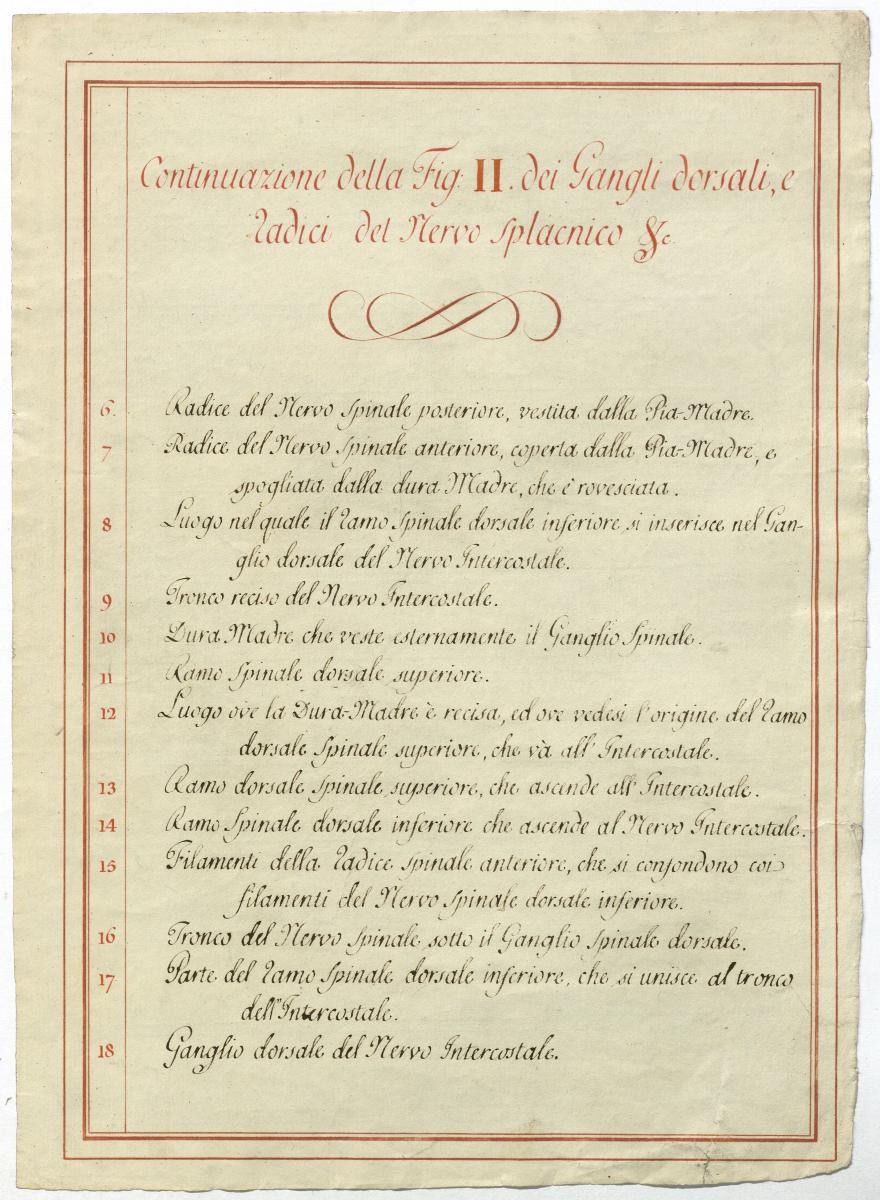 Continuazione della Fig: II. dei Gangli dorsali, e
Radici del Nervo Splacnico &c.
6. Radice del Nervo Spinale posteriore, vestita dalla Pia-Madre.
7 Radice del Nervo Spinale anteriore, coperta dalla Pia-Madre, e
spogliata dalla dura Madre, che è rovesciata.
8 Luogo nel quale il Ramo Spinale dorsale inferiore si inserisce nel Gan-
glio dorsale del Nervo Intercostale.
9 Tronco reciso del Nervo Intercostale.
10 Dura Madre che veste esternamente il Ganglio Spinale.
11 Ramo Spinale dorsale superiore.
12 Luogo ove la Dura-Madre è recisa, ed ove vedesi l'origine del Ramo
dorsale Spinale superiore, che và all'Intercostale.
13 Ramo dorsale Spinale superiore, che ascende all'Intercostale.
14 Ramo Spinale dorsale inferiore che ascende al Nervo Intercostale.
15 Filamenti della Radice spinale anteriore, che si confondono coi
filamenti del Nervo Spinale dorsale inferiore.
16 Tronco del Nervo Spinale sotto il Ganglio Spinale dorsale.
17 Parte del Ramo Spinale dorsale inferiore, che si unisce al tronco
dell'Intercostale.
18 Ganglio dorsale del Nervo Intercostale.